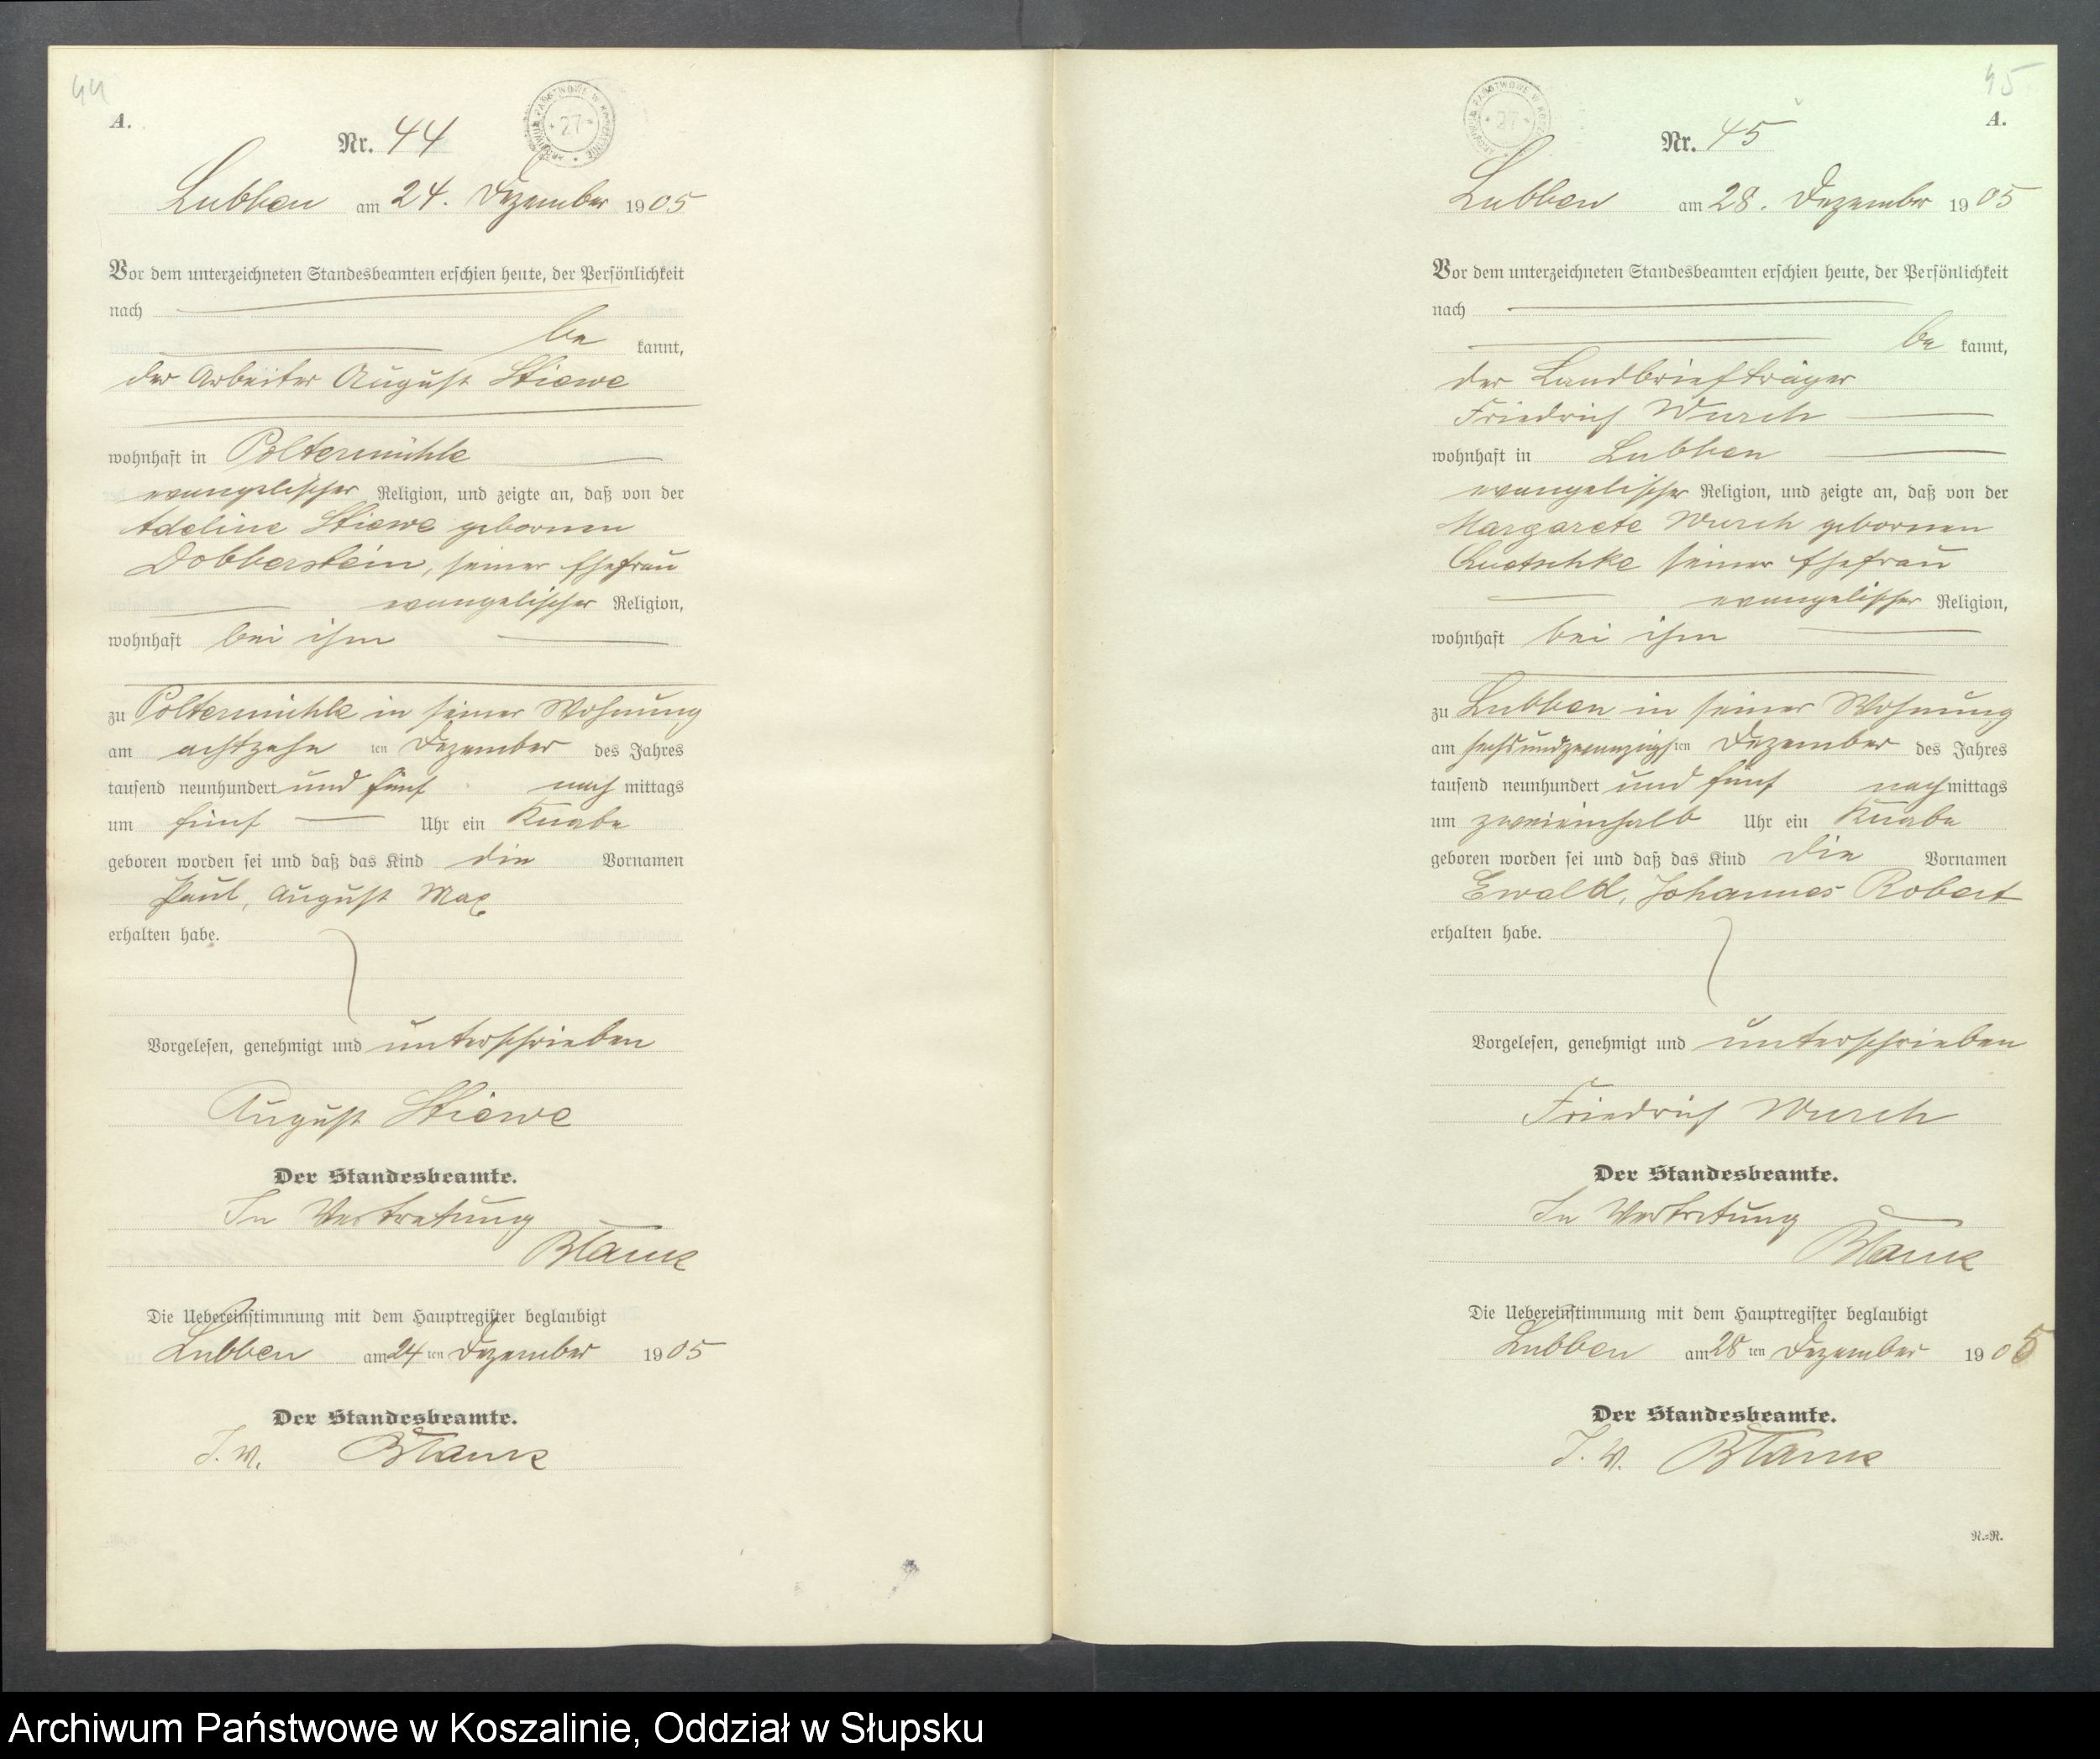 44
A.
Nr. 44
Lubben am 24. Dezember 1905
Vor dem unterzeichneten Standesbeamten erschien heute, der Persönlichkeit
nach
be kannt,
der Arbeiter August Stiewe
wohnhaft in Poltermühle
evangelischer Religion, und zeigte an, daß von der
Adeline Stiewe gebornen
Dobberstein, seiner Ehefrau
evangelischer Religion,
wohnhaft bei ihm
zu Poltermühle in seiner Wohnung
am achtzehn ten Dezember des Jahres
tausend neunhundert und fünf nach mittags
um fünf Uhr ein Knabe
geboren worden sei und daß das Kind die Vornamen
Paul, August Max
erhalten habe.
Vorgelesen, genehmigt und unterschrieben
August Stiewe
Der Standesbeamte.
In Vertretung
Blank
Die Uebereinstimmung mit dem Hauptregister beglaubigt
Lubben am 24 ten Dezember 1905
Der Standesbeamte.
I. V. Blank
45
A.
Nr. 45
Lubben am 28. Dezember 1905
Vor dem unterzeichneten Standesbeamten erschien heute, der Persönlichkeit
nach
be kannt,
der Landbriefträger
Friedrich Wurch
wohnhaft in Lubben
evangelischer Religion, und zeigte an, daß von der
Margarete Wurch gebornen
Quetschke seiner Ehefrau
evangelischer Religion,
wohnhaft bei ihm
zu Lubben in seiner Wohnung
am sechsundzwanzigsten Dezember des Jahres
tausend neunhundert und fünf nachmittags
um zweieinhalb Uhr ein Knabe
geboren worden sei und daß das Kind die Vornamen
Ewald, Johannes Robert
erhalten habe.
Vorgelesen, genehmigt und unterschrieben
Friedrich Wurch
Der Standesbeamte.
In Vertretung
Blank
Die Uebereinstimmung mit dem Hauptregister beglaubigt
Lubben am 28 ten Dezember 1905
Der Standesbeamte.
I. V. Blank
N.=N.
Archiwum Państwowe w Koszalinie, Oddział w Słupsku